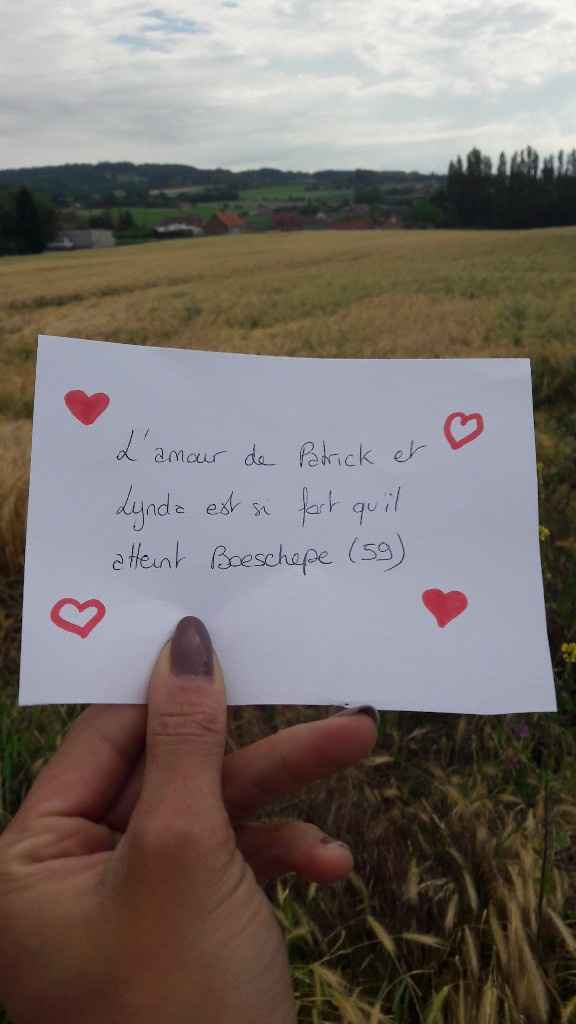 L'amour de Patrick et
Lynda est si fort qu'il
atteint Boeschepe (59)